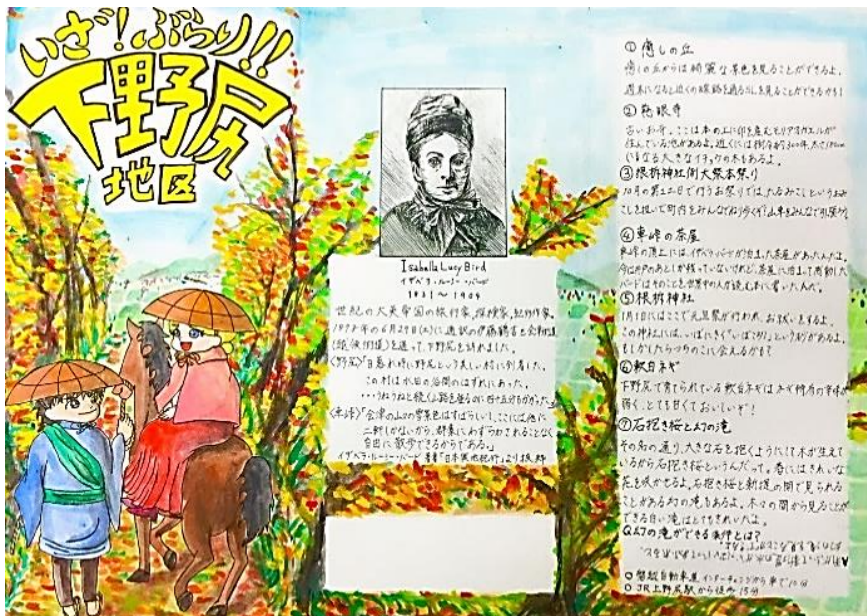 いざ!ぶらり!!
下野尻
地区
Isabella Lucy Bird
イザベラ・ルーシー・バード
1831～1904
世紀の大英帝国の旅行家、探検家、紀行作家。
1878年の6月29日(土)に通訳の伊藤鶴吉と会津街道
を通って、下野尻を訪れました。
〈野尻〉「日暮れ時に野尻という美しい村に到着した。
この村は水田の谷間のはずれにあった。
〈車峠〉「会津の山々の雪景色はすばらしいし、ここには他に
二軒しかないから、群衆にわずらわされることなく
自由に散歩できるからである。」
イザベラ・ルーシー・バード 著者「日本奥地紀行」より抜粋
①癒しの丘
癒しの丘からは綺麗な景色を見ることができるよ。
週末になると近くの線路を通るSLを見ることができるかも!
②
古いお寺。ここは木の上に卵を産むモリアオガエルが
住んでいる池があるよ。近くには樹令約300年、
なる大きなイチョウの木もあるよ。
③根折神社例大祭本祭り
10月の第2土日で行うお祭りでは、
こしを担いで町内をみんなでねり歩くぞ!山車をみんなで引張
④車峠の茶屋
車峠の頂上には、イザベラ・バードが泊まった茶屋があったんだよ。
今は井戸のあとしか残っていないけれど、茶屋に泊まって感動した
バードはそのことを世界中の人が読む本に書いたんだ。
⑤根折神社
1月1日にはここで元旦祭が行われ、お祓いをするよ。
この神社には、 があるよ。
もしかしたらつちのこに会えるかも?
⑥軟白ネギ
下野尻で育てられている軟白ネギはネギ特有の辛味が
弱く、とても甘くておいしいぞ!
⑦石抱き桜と幻の滝
その名の通り、大きな石を抱くようにして木が生えて
いるから石抱き桜というんだって。春にはきれいな
花を咲かせるよ。石抱き桜と新緑の間で見られる
ことがある幻の滝もあるよ。木々の間から見ることが
できる白い滝はとてもきれいだよ。
Q幻の滝ができる条件とは?
○磐越自動車道 インターチェンジから車で10分
○JR上野尻駅から徒歩15分